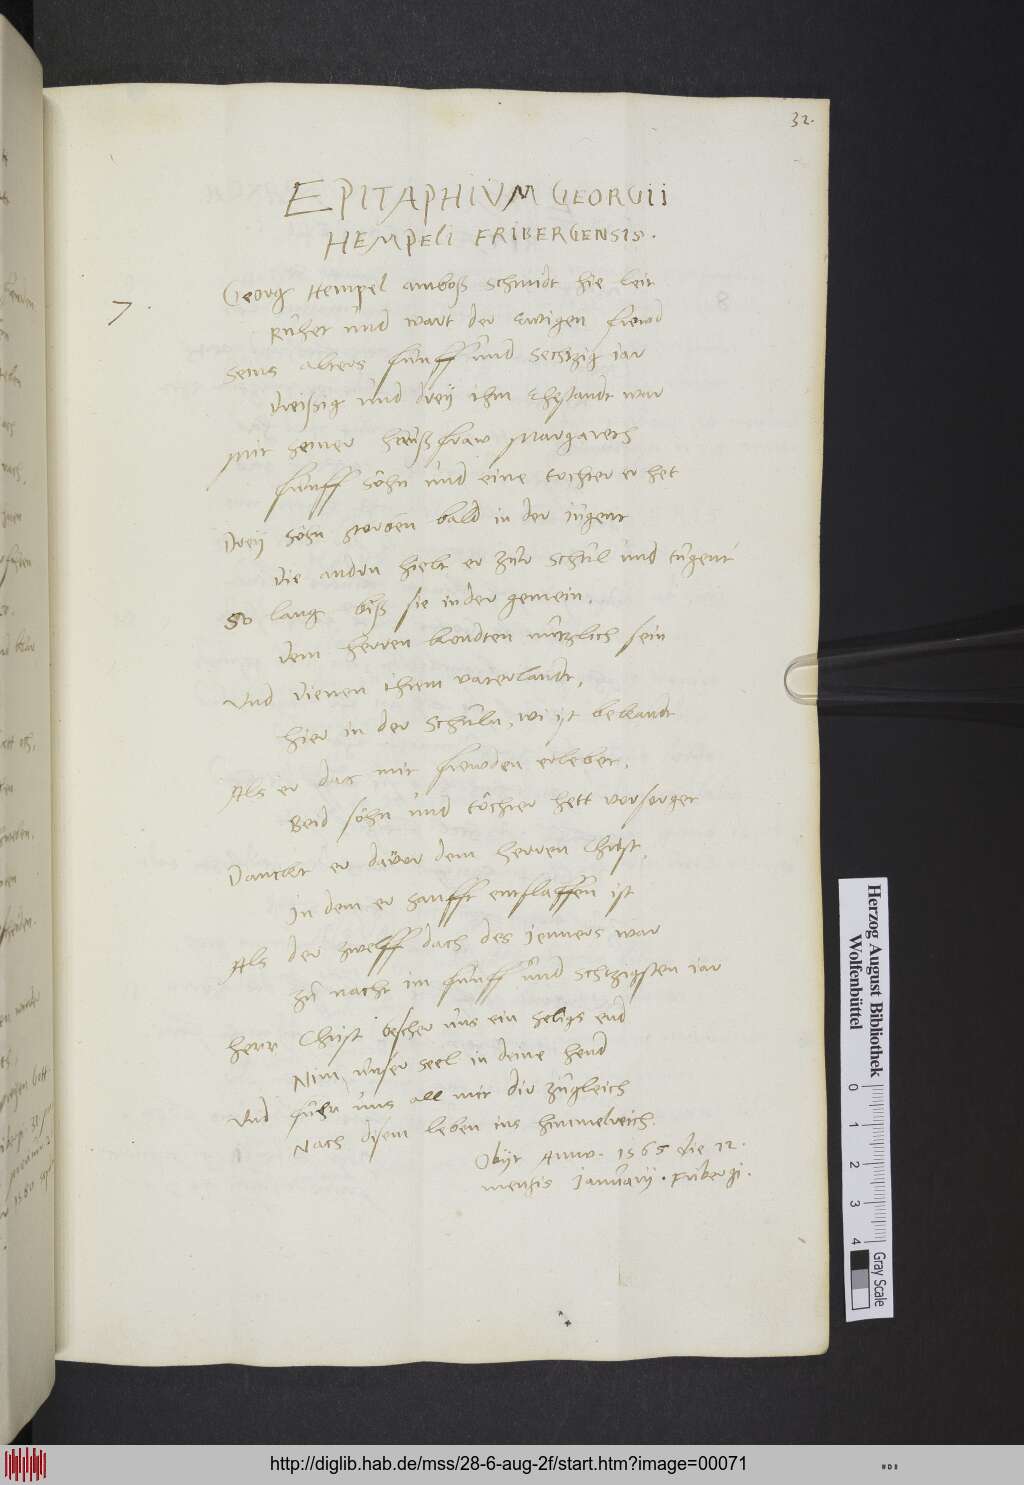 32.
EPITAPHIVM GEORGII
HEMPELI FRIBERGENSIS.
7.
Georg Hempel amboß schmidt hie leit
Rühet und wart der ewigen frewd
Seins alters fünff und sechzig iar
Dreißig und drey ihm Ehstandt war
Mit seiner haußfraw Margareth
fünff söhn und eine tochter er het
Drey söhn storben bald in der jugent
Die andrn hielt er zur schul und tugent
So lang biß sie in der gemein,
Dem herren kondten nützlich sein
Und dienen ihrem vaterlandt,
hier in der schuln, wi ist bekandt
Als er das mit frewden erlebet,
Beid söhn und töchter hett vorsorget
Danckt er davor dem herren Christ,
In dem er sanfft entslaffen ist
Als der zwelff dach des Jenners war
zu nacht im fünff und sechzigsten iar
Herr Christ bescher uns ein seligs end
Nim unser seel in deine hend
Und führ uns all mit dir zugleich
Nach disem leben ins himmelreich.
Obijt Anno. 1565 die 12.
mensis Januarij. Fribergi.
Herzog August Bibliothek
Wolfenbüttel
0 1 2 3 4
Gray Scale
http://diglib.hab.de/mss/28-6-aug-2f/start.htm?image=00071